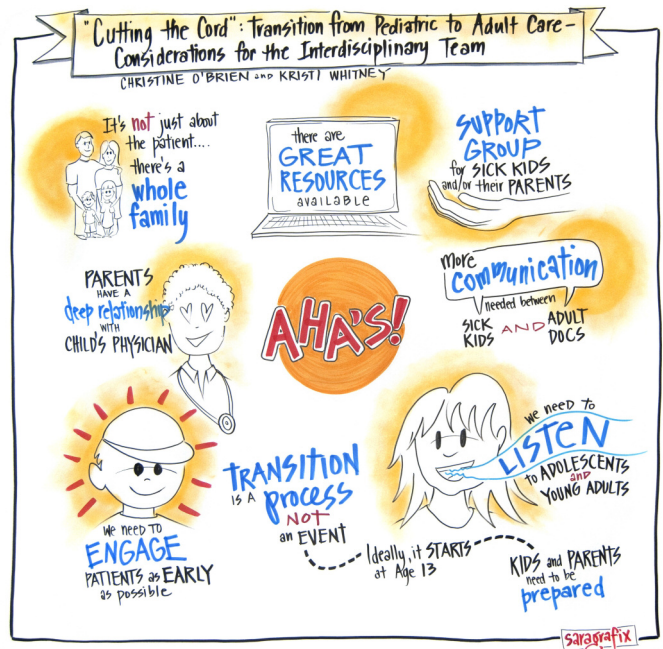 "Cutting the Cord": Transition from Pediatric to Adult Care-
Considerations for the Interdisciplinary Team
CHRISTINE O'BRIEN and KRISTI WHITNEY
It's not just about
the patient....
there's a
whole
family
there are
GREAT
RESOURCES
available
SUPPORT
GROUP
for SICK KIDS
and/or their PARENTS
PARENTS
HAVE A
deep relationship
WITH
CHILD'S PHYSICIAN
AHA'S!
more
communication
needed between
SICK
KIDS
AND
ADULT
DOCS
we need to
ENGAGE
PATIENTS as EARLY
as possible
TRANSITION
IS A process
NOT
an EVENT
Ideally, it STARTS
at Age 13
we need to
LISTEN
to ADOLESCENTS
and
YOUNG ADULTS
KIDS and PARENTS
need to be
prepared
saragrafix